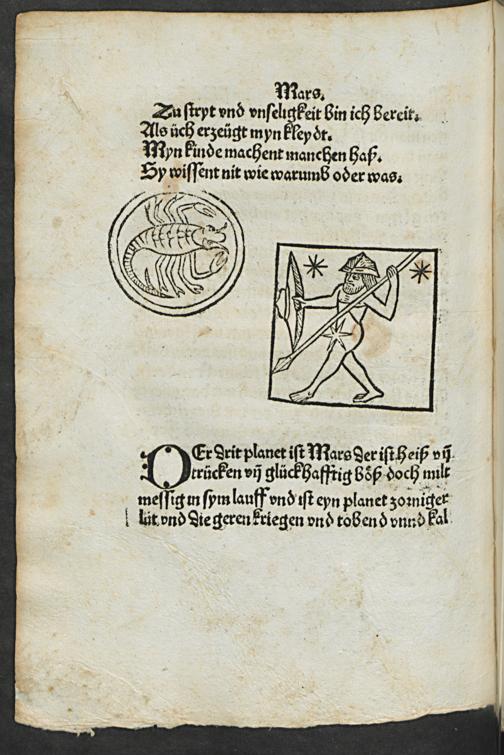 Mars.
Zu stryt vnd vnseligkeit bin ich bereit.
Als üch erzeügt myn kleydt.
Myn kinde machent manchen haß.
Sy wissent nit wie warumb oder was.
DEr drit planet ist Mars der ist heiß vn̄
trücken vn̄ glückhafftig böß doch mitt
messig in sym lauff vnd ist eyn planet zorniger
lüt vnd die geren kriegen vnd tobend vnnd kal